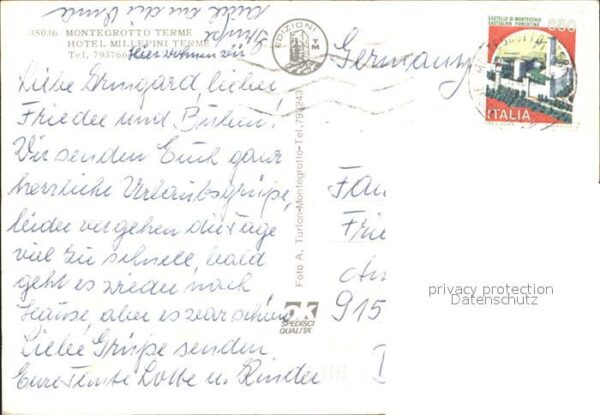 35036 MONTEGROTTO TERME
HOTEL MILLEPINI TERME
Tel. 793766
Hier wohnen wir
Liebe Irmgard, lieber
Frieder und Buben!
Wir senden Euch ganz
herrliche Urlaubsgrüße,
leider vergehen die Tage
viel zu schnell, bald
geht es wieder nach
Hause, aber es war schön.
Liebe Grüße senden
Eure Tante Lotte u. Kinder
Grüße
auch an die
EDIZIONI
TM
Foto A. Turlon-Montegrotto-Tel. 793243
OK
SPEDISCI
QUALITA'
Germany
CASTELLO DI MONTECCHIO
CASTIGLION FIORENTINO
650
ITALIA
Fam
Frie
An
915
privacy protection
Datenschutz